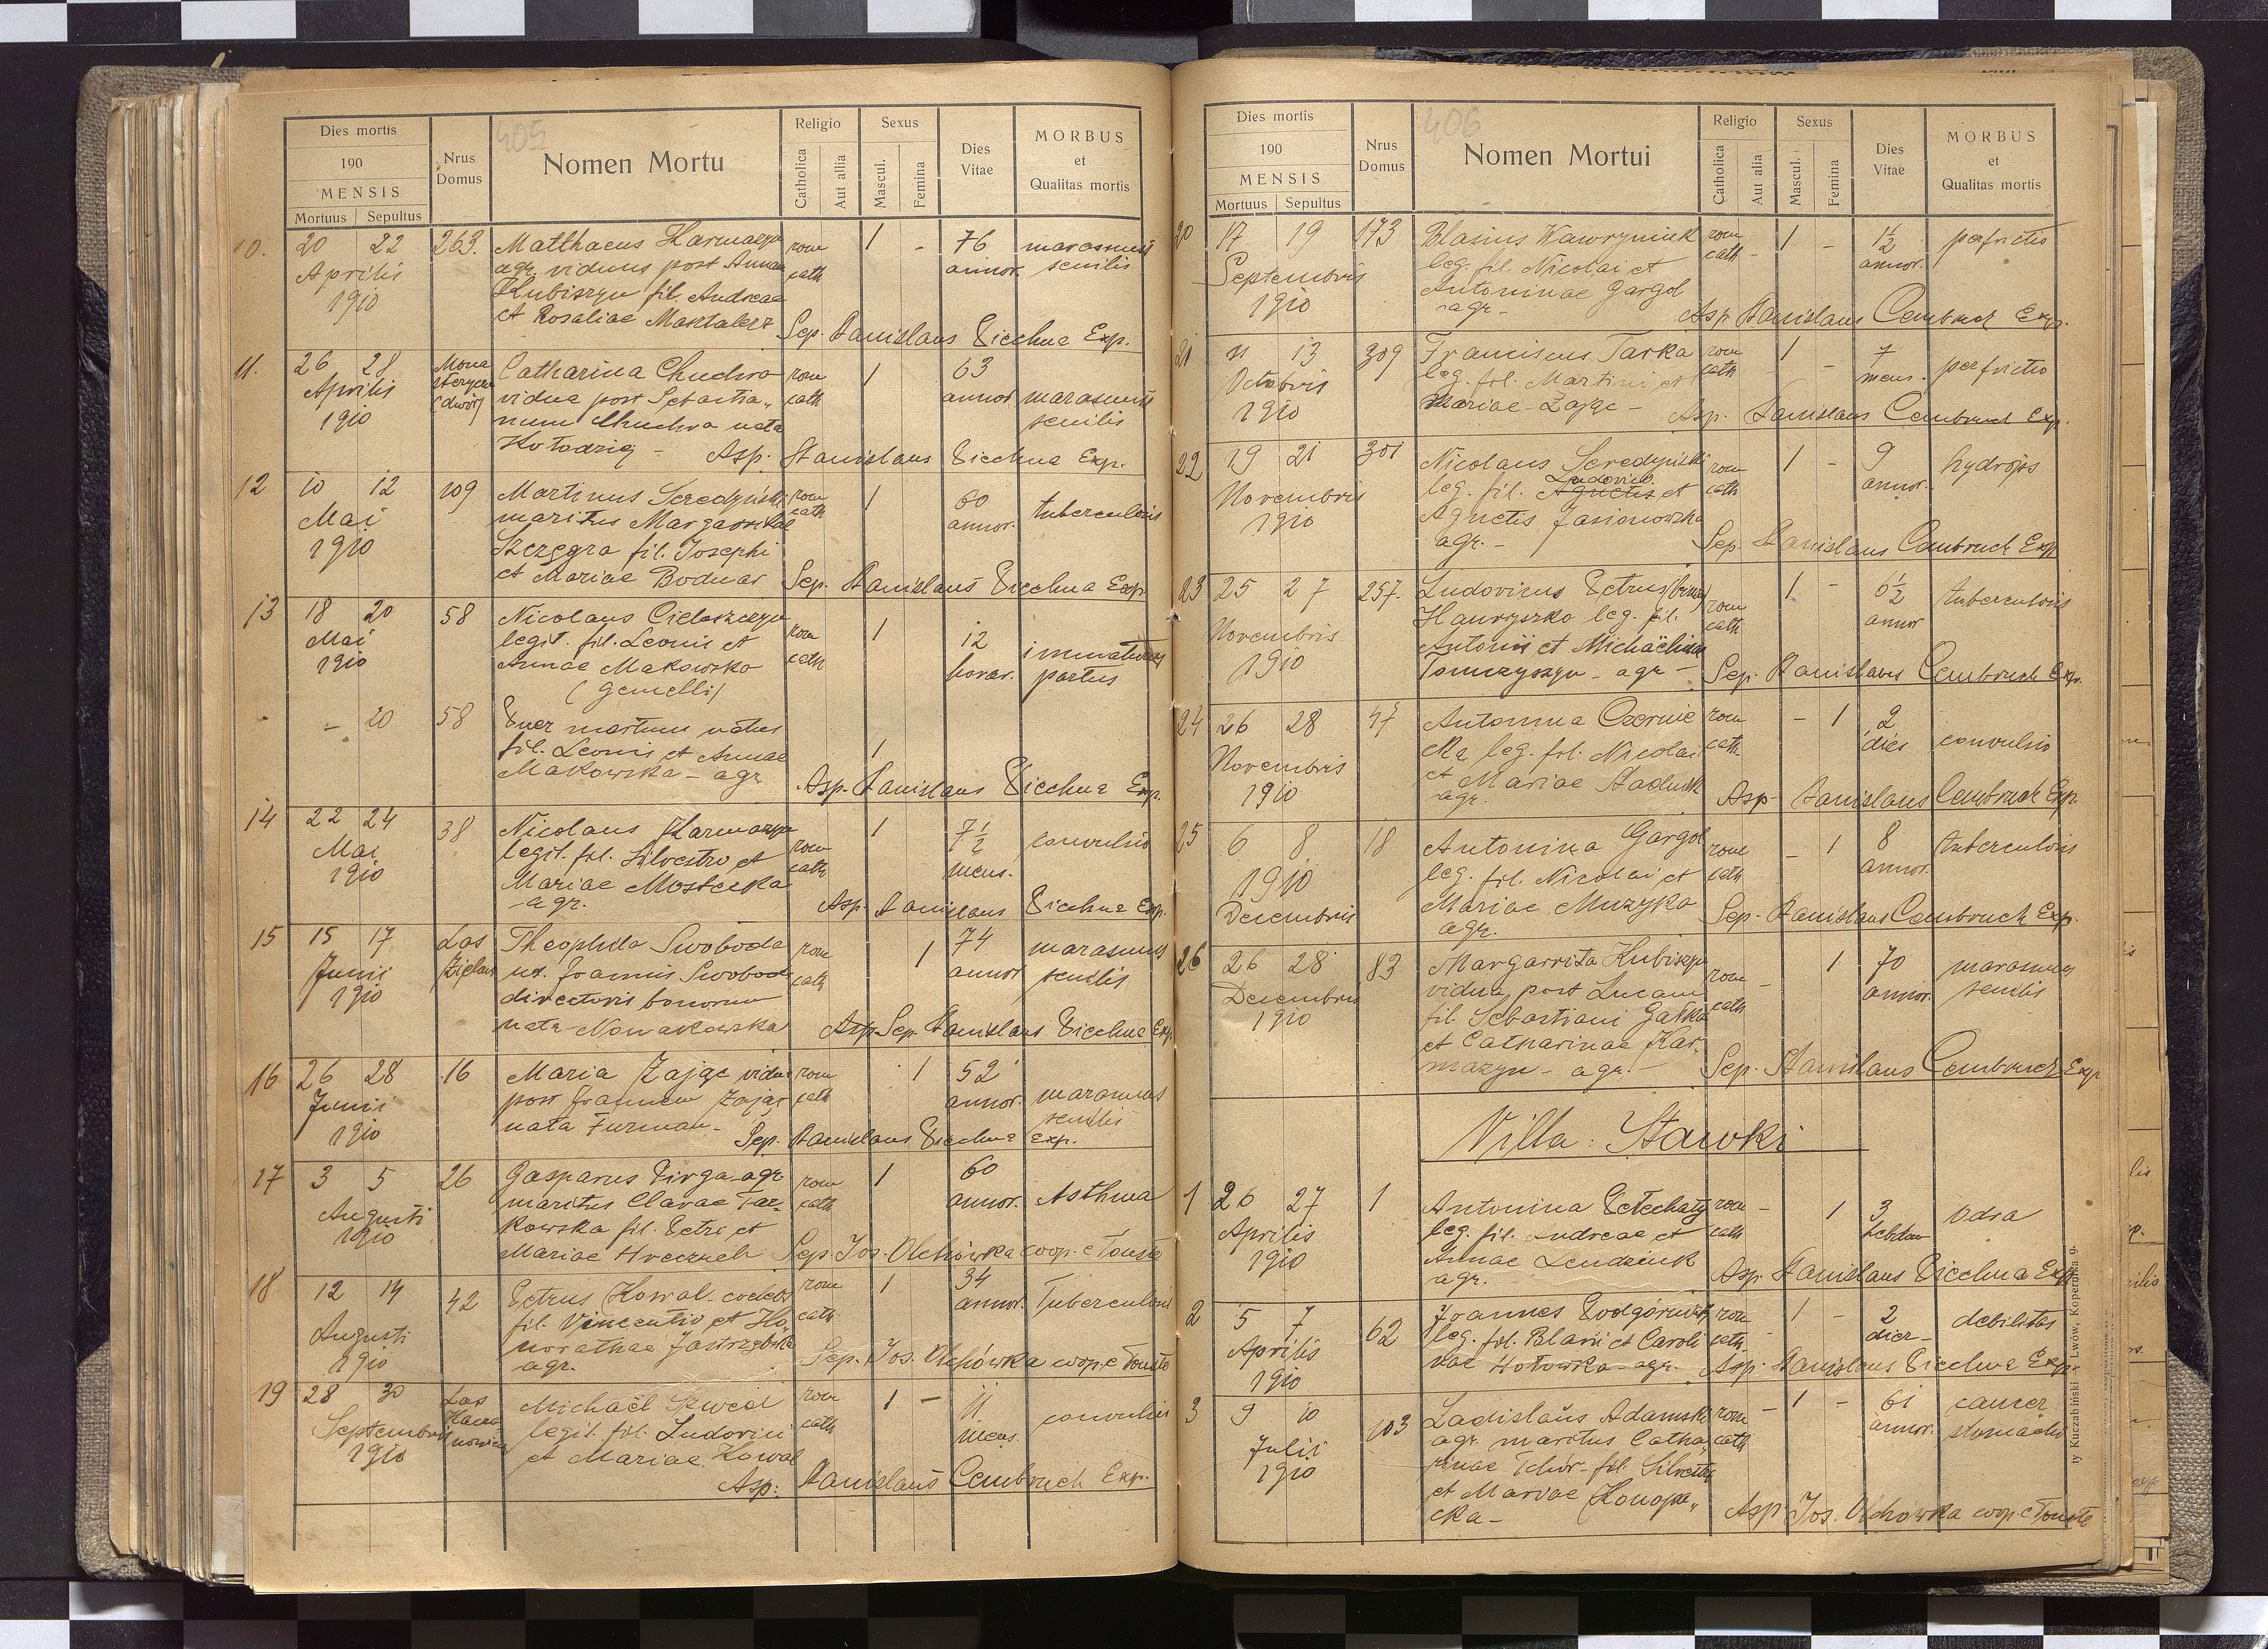 405
Dies mortis
190
MENSIS
Mortuus Sepultus
Nrus Domus
Nomen Mortu
Religio
Catholica
Aut alia
Sexus
Mascul.
Femina
Dies Vitae
MORBUS
et
Qualitas mortis
10. 20 22 263. Matthaeus Harmazyn rom 1 - 76 marasmus
Aprilis agr. viduus post Annam cath annor. senilis
1910 Kubiszyn fil. Andreae
et Rosaliae Masztalerz Sep. Stanislaus Piechna Exp.
11. 26 28 Catharina Chudwa rom 1 63
Aprilis (dwór) vidua post Sebastia„ cath annor. marasmus
1910 num Chudwa nata senilis
Kołodzig - Asp. Stanislaus Piechna Exp.
12 10 12 109 Martinus Seredyński rom 1 60 tuberculosis
Mai maritus Margaritae cath annor.
1910 fil. Josephi
et Mariae Bodnar Sep. Stanislaus Piechna Exp.
13 18 20 58 Nicolaus Cieleszczyn rom 1 12 immaturus
Mai legit. fil. Leonis et cath horar. partus
1910 Annae Makowska
(gemelli)
- 20 58 Puer mortuus natus
fil. Leonis et Annae 1
Makowska - agr. Asp. Stanislaus Piechna Exp.
14 22 24 38 Nicolaus Harmazyn rom 1 7½ convulsio
Mai legit. fil. Silvestro et cath mens.
1910 Mariae Mostecka
agr. Asp. Stanislaus Piechna Exp.
15 15 17 Las Theophila Swoboda rom 1 74 marasmus
Junii Zielona ux. Joannis Swoboda cath annor. senilis
1910 directoris bonorum
nata Nowakowska Asp. Sep. Stanislaus Piechna Exp.
16 26 28 16 Maria Zając vidua rom 1 52 marasmus
Junii post Joannem Zając cath annor. senilis
1910 nata Furman - Sep. Stanislaus Piechna Exp.
17 3 5 26 Gasparus Pirga agr. rom 1 60 Asthma
Augusti maritus Clarae Tar- cath annor.
1910 kowska fil. Petri et
Mariae Hreczuch Sep. Jos. Olchówka coop. e Touste
18 12 14 42 Petrus Kowal coelebs rom 1 34 Tuberculosis
Augusti fil. Vincentio et Ho„ cath annor.
1910 norathae Jastrzębska
agr. Sep. Jos. Olchówka coop. e Touste
19 28 30 Las Michaël rom 1 - 11 convulsio
Septembris legit. fil. Ludovici cath mens.
1910 et Mariae Kowal
Asp. Stanislaus Cembruch Exp.
406
Dies mortis
190
MENSIS
Mortuus Sepultus
Nrus Domus
Nomen Mortui
Religio
Catholica
Aut alia
Sexus
Mascul.
Femina
Dies Vitae
MORBUS
et
Qualitas mortis
20 17 19 173 Blasius Wawryniuk rom 1 - 1½ perfrictio
Septembris leg. fil. Nicolai et cath annor.
1910 Antoninae Gargol
agr. Asp. Stanislaus Cembruch Exp.
21 11 13 309 Franciscus Tarka rom 1 - 7 perfrictio
Octobris leg. fil. Martini et cath mens.
1910 Mariae Zając - Asp. Stanislaus Cembruch Exp.
22 19 21 301 Nicolaus Seredyński rom 1 - 9 hydrops
Novembris leg. fil. Agnetis Ludovico et cath annor.
1910 Agnetis Jasionowska
agr. - Sep. Stanislaus Cembruch Exp.
23 25 27 257. Ludovicus Petrus (bin.) rom 1 - 6½ tuberculosis
Novembris Hawryszko leg. fil. cath annor
1910 Antonii et Michaëlina
Tomczyszyn - agr - Sep. Stanislaus Cembruch Exp.
24 26 28 47 Antonina Czernie rom - 1 2 convulsio
Novembris cka leg. fil. Nicolai cath dies
1910 et Mariae Saduik
agr. Asp. Stanislaus Cembruch Exp.
25 6 8 18 Antonina Gargol rom - 1 8 tuberculosis
1910 leg. fil. Nicolai et cath annor.
Decembris Mariae Muzyka
agr. Sep. Stanislaus Cembruch Exp.
26 26 28 83 Margarrita Kubiszyn rom - 1 70 marasmus
Decembris vidua post Lucam cath annor. senilis
1910 fil. Sebastiani Gałka
et Catharinae Har„
mazyn - agr. - Sep. Stanislaus Cembruch Exp
Villa: Stawki
1 26 27 1 Antonina rom - 1 3 Odra
Aprilis leg. fil. Andreae et cath hebdom
1910 Annae Lendziuk
agr. Asp. Stanislaus Piechna Exp.
2 5 7 62 Joannes rom - 1 - 2 debilitas
Aprilis leg. fil. Blasii et Caroli cath dier-
1910 nae Hołowka - agr. Asp. Stanislaus Piechna Exp.
3 9 10 103 Ladislaus Adamski rom - 1 - 61 cancer
Julii agr. maritus Catha„ cath annor. stomachi
1910 rinae Tchór - fil. Silvestri
et Mariae Konopa„
cka - Asp. Jos. Olchówka coop. e Touste
ty Kuczabiński — Lwów, Kopernika 9.